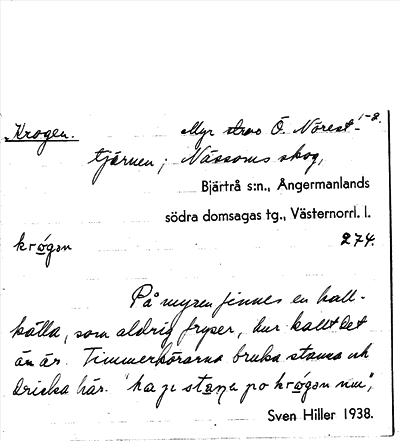 Krogen. Myr strax Ö. Nörest- 1-8.
tjärnen; Nässoms skog,
Bjärtrå s:n., Ångermanlands
södra domsagas tg., Västernorrl. l.
krogən 274.
På myren finnes en kall-
källa, som aldrig fryser, hur kallt det
än är. Timmerkörarna bruka stanna och
dricka här. "ha ju stana po krogən nu",
Sven Hiller 1938.